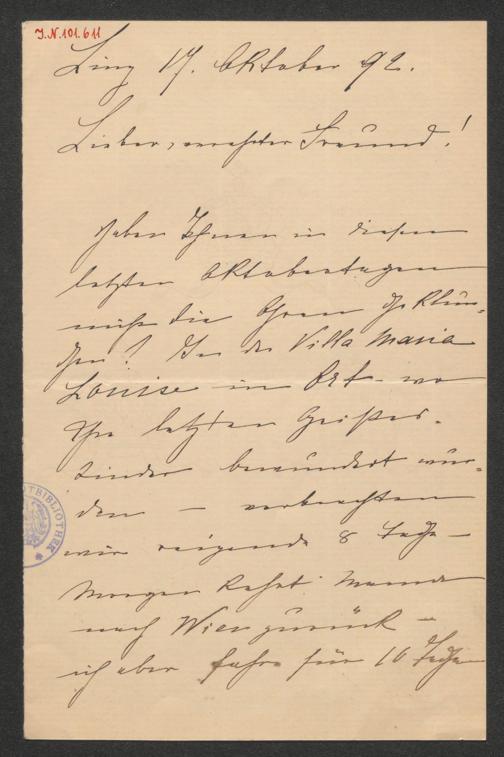 J.N. 101.611
Linz 17. Oktober 92.
Lieber, verehrter Freund!
Haben Ihnen in diesen
letzten Oktobertagen
nicht die Ohren geklun-
gen? In der Villa Maria
Louise in Ort – wo
Ihre letzten Geistes-
kinder bewundert wur-
den – verbrachten
wir reizende 8 Tage –
Morgen kehrt Mama
nach Wien zurück –
ich aber fahre für 10 Tage
TBIBLIOTHEK